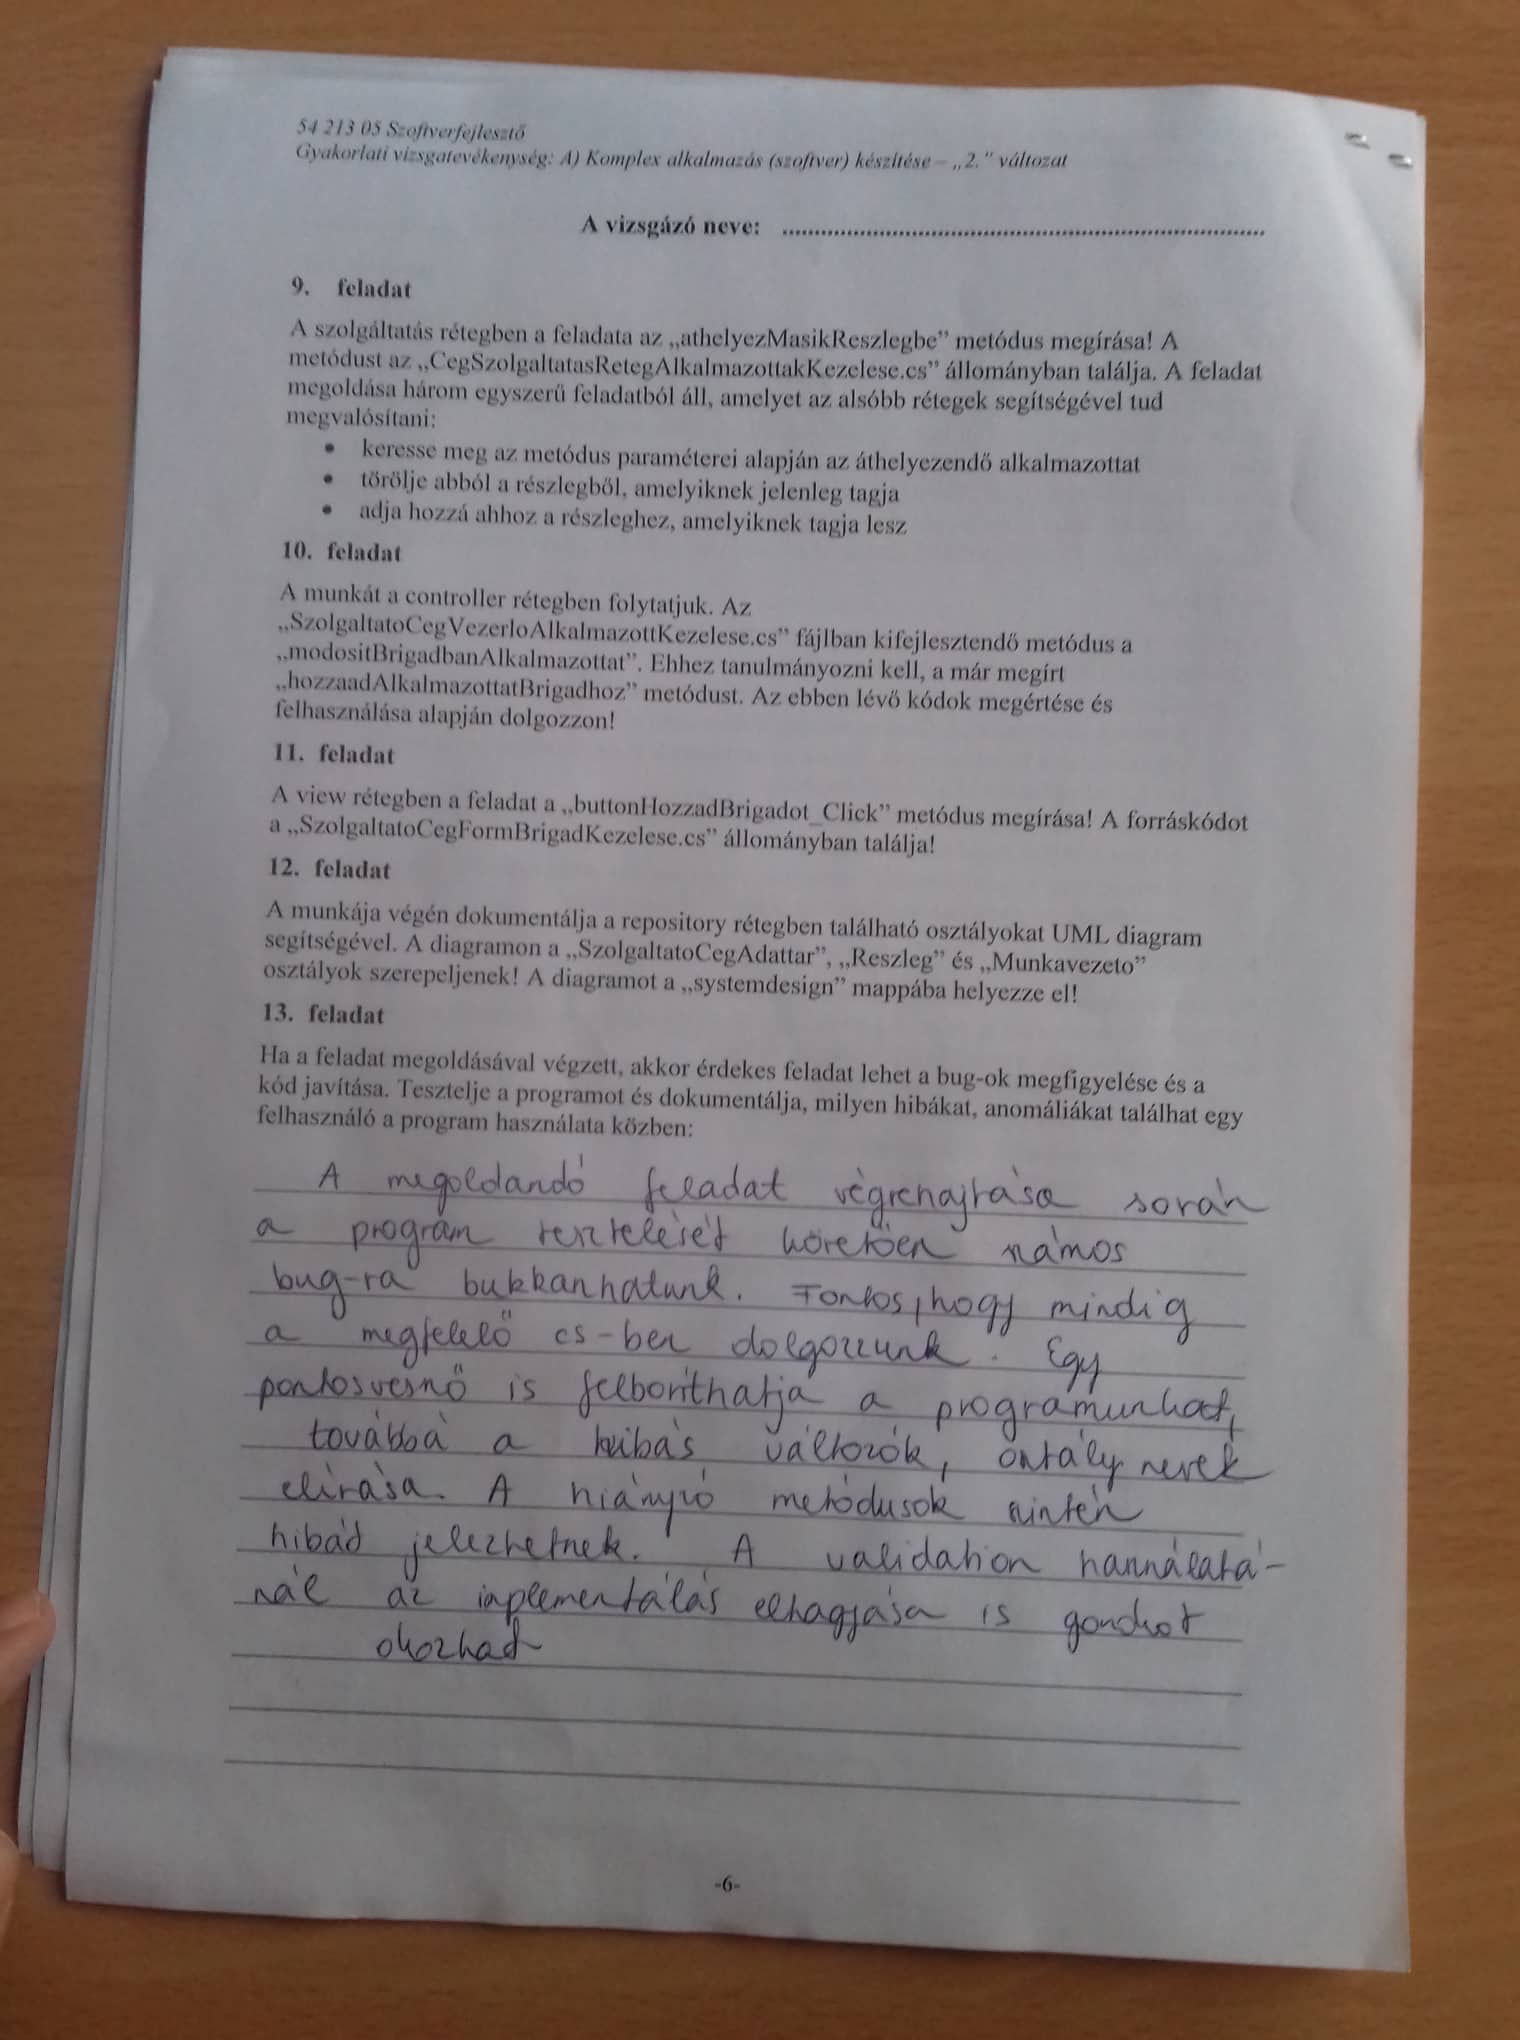 54 213 05 Szoftverfejlesztő
Gyakorlati vizsgatevékenység: A) Komplex alkalmazás (szoftver) készítése – „2.” változat
A vizsgázó neve: ................................................................................
9. feladat
A szolgáltatás rétegben a feladata az „athelyezMasikReszlegbe” metódus megírása! A
metódust az „CegSzolgaltatasRetegAlkalmazottakKezelese.cs” állományban találja. A feladat
megoldása három egyszerű feladatból áll, amelyet az alsóbb rétegek segítségével tud
megvalósítani:
• keresse meg az metódus paraméterei alapján az áthelyezendő alkalmazottat
• törölje abból a részlegből, amelyiknek jelenleg tagja
• adja hozzá ahhoz a részleghez, amelyiknek tagja lesz
10. feladat
A munkát a controller rétegben folytatjuk. Az
„SzolgaltatoCegVezerloAlkalmazottKezelese.cs” fájlban kifejlesztendő metódus a
„modositBrigadbanAlkalmazottat”. Ehhez tanulmányozni kell, a már megírt
„hozzaadAlkalmazottatBrigadhoz” metódust. Az ebben lévő kódok megértése és
felhasználása alapján dolgozzon!
11. feladat
A view rétegben a feladat a „buttonHozzadBrigadot_Click” metódus megírása! A forráskódot
a „SzolgaltatoCegFormBrigadKezelese.cs” állományban találja!
12. feladat
A munkája végén dokumentálja a repository rétegben található osztályokat UML diagram
segítségével. A diagramon a „SzolgaltatoCegAdattar”, „Reszleg” és „Munkavezeto”
osztályok szerepeljenek! A diagramot a „systemdesign” mappába helyezze el!
13. feladat
Ha a feladat megoldásával végzett, akkor érdekes feladat lehet a bug-ok megfigyelése és a
kód javítása. Tesztelje a programot és dokumentálja, milyen hibákat, anomáliákat találhat egy
felhasználó a program használata közben:
A megoldandó feladat végrehajtása során
a program tesztelését követően számos
bug-ra bukkanhatunk. Fontos, hogy mindig
a megfelelő cs-ben dolgozzunk. Egy
pontosvesző is felboríthatja a programunkat,
továbbá a hibás változók, osztály nevek
elírása. A hiányzó metódusok szintén
hibát jelezhetnek. A validation használatá-
nál az implementálás elhagyása is gondot
okozhat
-6-